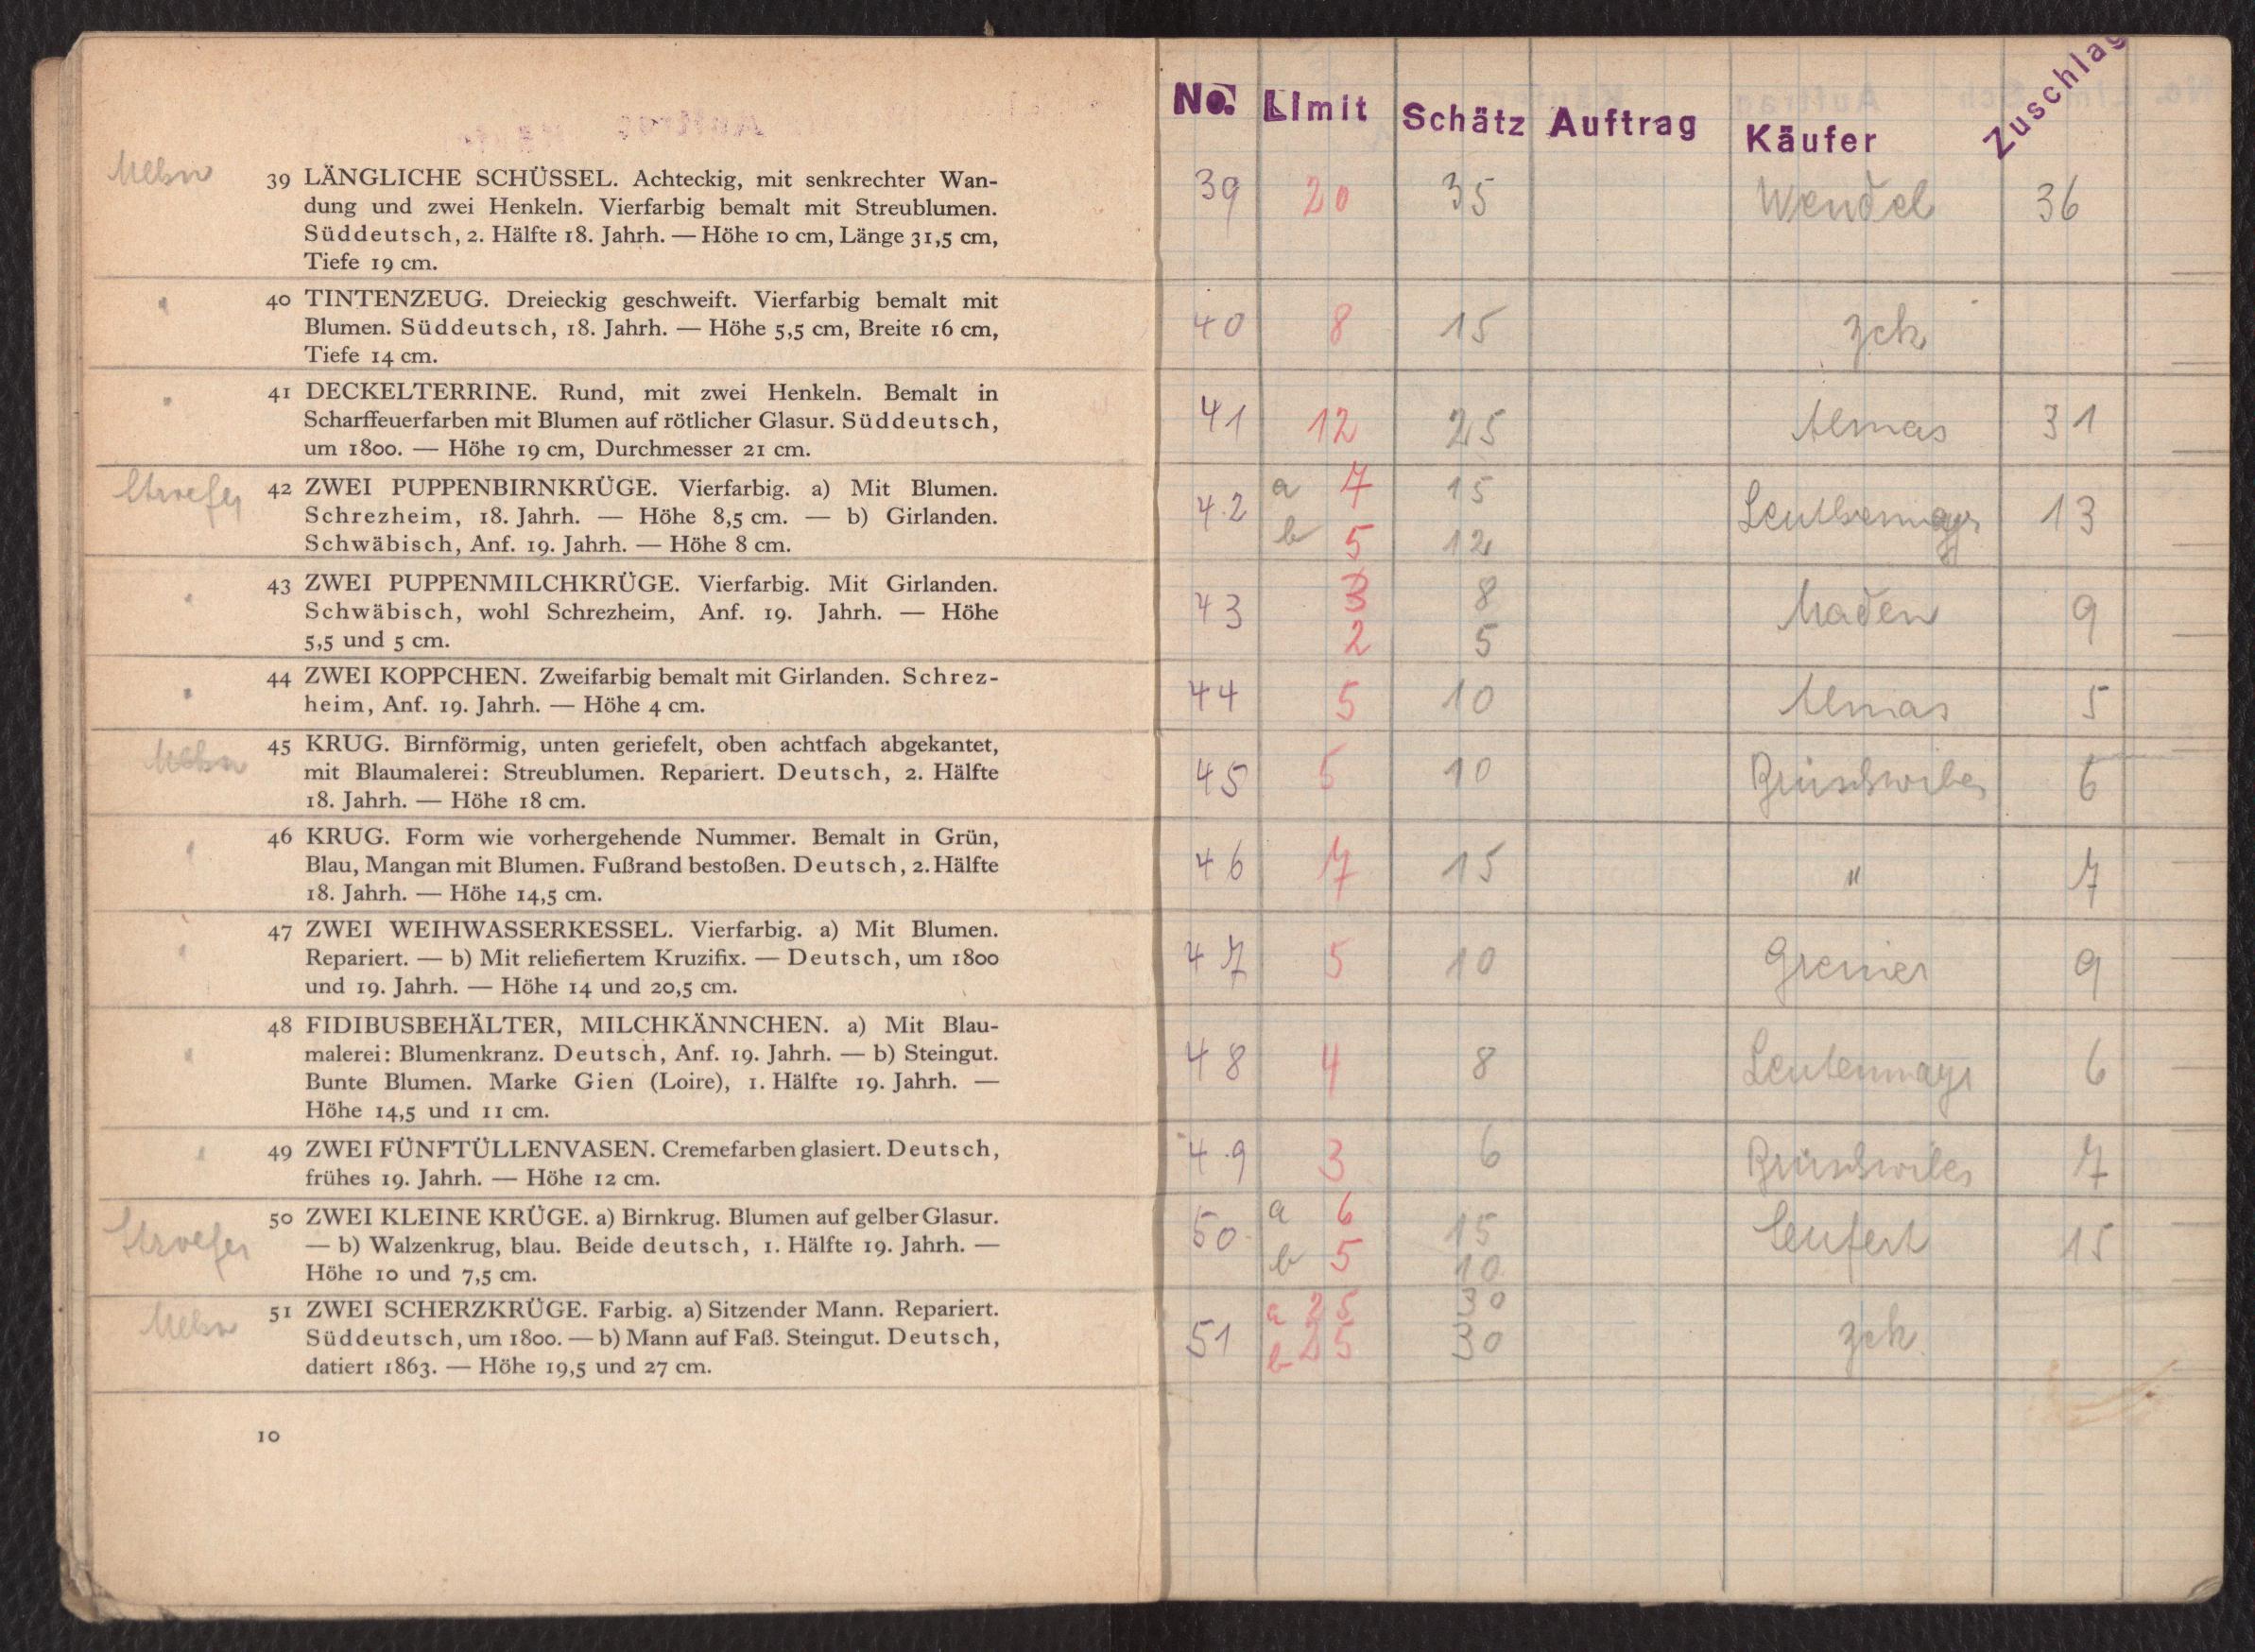 39 LÄNGLICHE SCHÜSSEL. Achteckig, mit senkrechter Wan-
dung und zwei Henkeln. Vierfarbig bemalt mit Streublumen.
Süddeutsch, 2. Hälfte 18. Jahrh. — Höhe 10 cm, Länge 31,5 cm,
Tiefe 19 cm.
40 TINTENZEUG. Dreieckig geschweift. Vierfarbig bemalt mit
Blumen. Süddeutsch, 18. Jahrh. — Höhe 5,5 cm, Breite 16 cm,
Tiefe 14 cm.
41 DECKELTERRINE. Rund, mit zwei Henkeln. Bemalt in
Scharffeuerfarben mit Blumen auf rötlicher Glasur. Süddeutsch,
um 1800. — Höhe 19 cm, Durchmesser 21 cm.
42 ZWEI PUPPENBIRNKRÜGE. Vierfarbig. a) Mit Blumen.
Schrezheim, 18. Jahrh. — Höhe 8,5 cm. — b) Girlanden.
Schwäbisch, Anf. 19. Jahrh. — Höhe 8 cm.
43 ZWEI PUPPENMILCHKRÜGE. Vierfarbig. Mit Girlanden.
Schwäbisch, wohl Schrezheim, Anf. 19. Jahrh. — Höhe
5,5 und 5 cm.
44 ZWEI KOPPCHEN. Zweifarbig bemalt mit Girlanden. Schrez-
heim, Anf. 19. Jahrh. — Höhe 4 cm.
45 KRUG. Birnförmig, unten geriefelt, oben achtfach abgekantet,
mit Blaumalerei: Streublumen. Repariert. Deutsch, 2. Hälfte
18. Jahrh. — Höhe 18 cm.
46 KRUG. Form wie vorhergehende Nummer. Bemalt in Grün,
Blau, Mangan mit Blumen. Fußrand bestoßen. Deutsch, 2. Hälfte
18. Jahrh. — Höhe 14,5 cm.
47 ZWEI WEIHWASSERKESSEL. Vierfarbig. a) Mit Blumen.
Repariert. — b) Mit reliefiertem Kruzifix. — Deutsch, um 1800
und 19. Jahrh. — Höhe 14 und 20,5 cm.
48 FIDIBUSBEHÄLTER, MILCHKÄNNCHEN. a) Mit Blau-
malerei: Blumenkranz. Deutsch, Anf. 19. Jahrh. — b) Steingut.
Bunte Blumen. Marke Gien (Loire), 1. Hälfte 19. Jahrh. —
Höhe 14,5 und 11 cm.
49 ZWEI FÜNFTÜLLENVASEN. Cremefarben glasiert. Deutsch,
frühes 19. Jahrh. — Höhe 12 cm.
50 ZWEI KLEINE KRÜGE. a) Birnkrug. Blumen auf gelber Glasur.
— b) Walzenkrug, blau. Beide deutsch, 1. Hälfte 19. Jahrh. —
Höhe 10 und 7,5 cm.
51 ZWEI SCHERZKRÜGE. Farbig. a) Sitzender Mann. Repariert.
Süddeutsch, um 1800. — b) Mann auf Faß. Steingut. Deutsch,
datiert 1863. — Höhe 19,5 und 27 cm.
10
No. Limit Schätz Auftrag Käufer Zuschlag
39 20 35 Wendel 36
40 8 15 zck
41 12 25 Almas 31
42 a 7 15 13
b 5 12
43 3 8 9
2 5
44 5 10 Almas 5
45 5 10 6
46 7 15 " 7
47 5 10 Greiner 9
48 4 8 6
49 3 6 7
50 a 6 15 15
b 5 10
51 a 25 30 zck
b 25 30